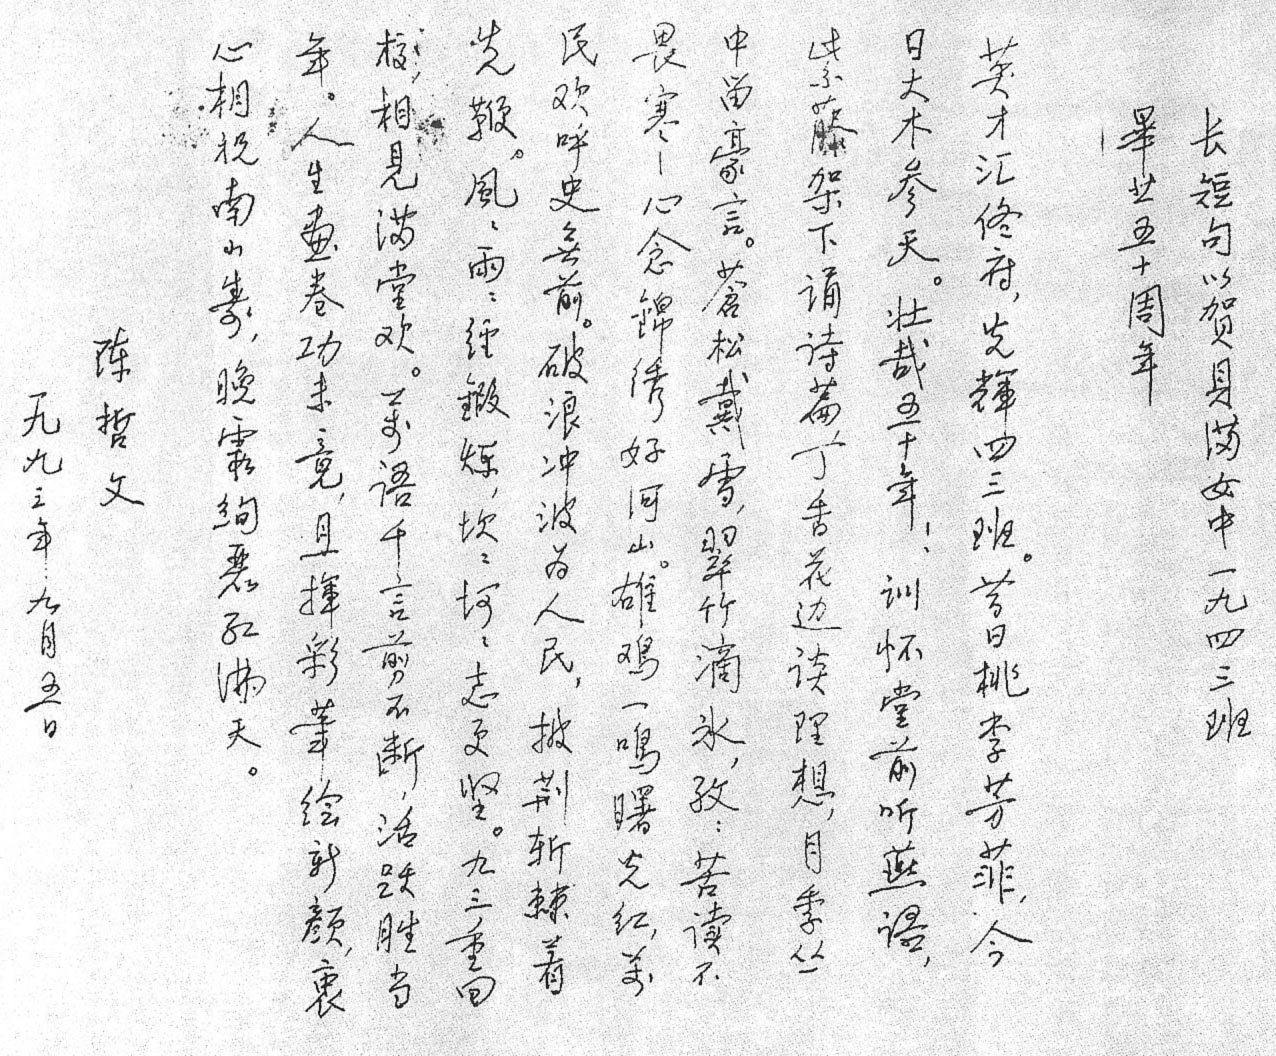 长短句以贺貝滿女中一九四三班
畢业五十周年
英才汇佟府，光輝四三班。昔日桃李芳菲，今
日大木参天。壮哉五十年！训怀堂前听燕語，
紫藤架下誦诗篇，丁香花边谈理想，月季丛
中留豪言。蒼松戴雪，翠竹滴氷，孜：苦读不
畏寒—心念錦绣好河山。雄鸡一鳴曙光红，万
民欢呼史無前。破浪冲波为人民，披荆斩棘着
先鞭。風：雨：经鍛炼，坎：坷：志更坚。九三重回
校，相見满堂欢。万语千言剪不断，活跃胜当
年。人生画卷功未竟，且揮彩筆绘新颜，衷
心相祝南山寿，晚霞絢丽红满天。
陈哲文
一九九三年.九月五日